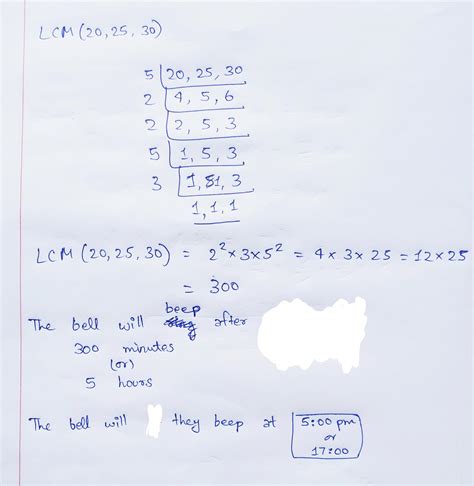 LCM (20, 25, 30)
5 | 20, 25, 30
2 | 4, 5, 6
2 | 2, 5, 3
5 | 1, 5, 3
3 | 1, 1, 3
1, 1, 1
LCM (20, 25, 30) = 2² × 3 × 5² = 4 × 3 × 25 = 12 × 25
= 300
The bell will beep after
300 minutes
(or)
5 hours
The bell will they beep at 5:00 pm
or
17:00